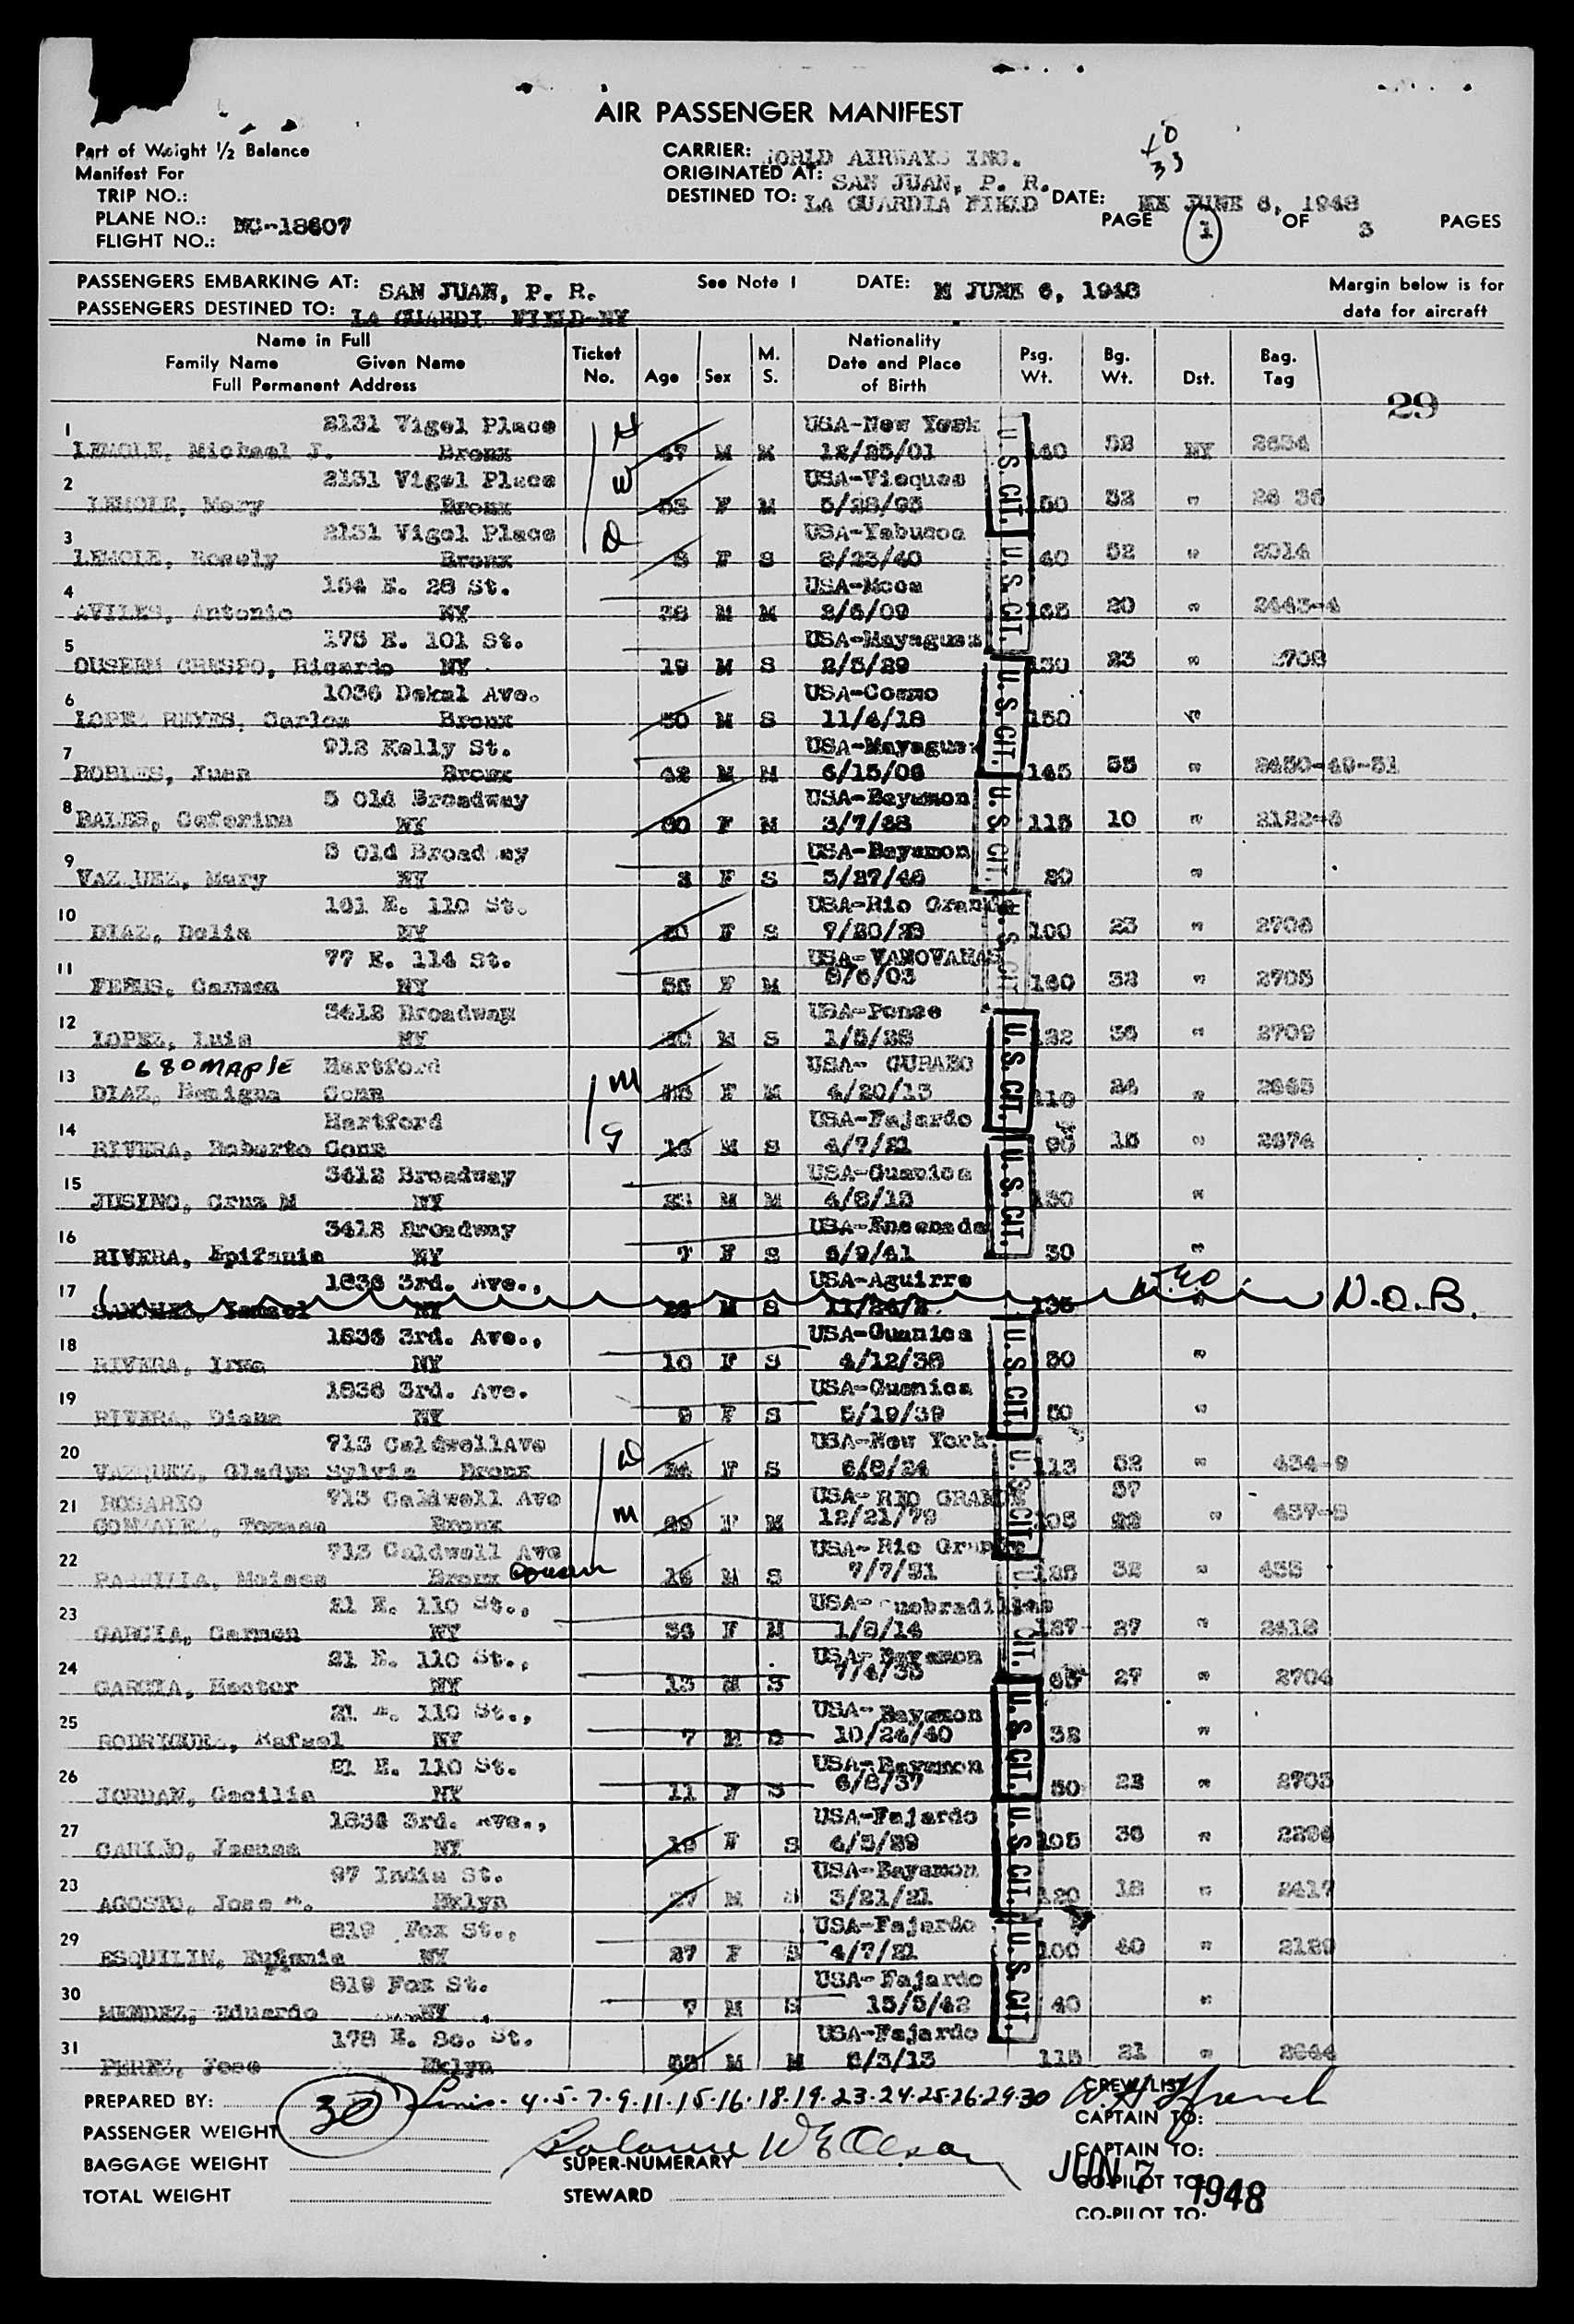 AIR PASSENGER MANIFEST
Part of Weight 1/2 Balance
Manifest For
TRIP NO.:
PLANE NO.: NC-18607
FLIGHT NO.:
CARRIER: WORLD AIRWAYS INC.
ORIGINATED AT: SAN JUAN, P. R.
DESTINED TO: LA GUARDIA FIELD DATE: JUNE 6, 1948
33
PAGE 1 OF 3 PAGES
PASSENGERS EMBARKING AT: SAN JUAN, P. R. See Note 1 DATE: JUNE 6, 1948
PASSENGERS DESTINED TO: LA GUARDI FIELD-NY
Margin below is for
data for aircraft
Name in Full
Family Name Given Name
Full Permanent Address
Ticket No. Age Sex M. S. Nationality Date and Place of Birth Psg. Wt. Bg. Wt. Dst. Bag. Tag
29
1 2131 Vigel Place H USA-New York
LEMOLE, Michael J. Bronx 47 M M 12/25/01 140 52 NY 2634
2 2131 Vigel Place W USA-Vieques
LEMOLE, Mary Bronx 53 F M 5/28/95 150 52 " 26 36
3 2131 Vigel Place D USA-Yabucoa
LEMOLE, Rosely Bronx 8 F S 2/23/40 40 52 " 2014
4 154 E. 28 St. USA-Moca
AVILES, Antonio NY 38 M M 2/6/09 165 20 " 2443-4
5 175 E. 101 St. USA-Mayaguez
CRESPO, Ricardo NY 19 M S 2/5/29 130 23 " 2708
6 1036 Dekal Ave. USA-Coamo
LOPEZ REYES, Carlos Bronx 30 M S 11/4/18 150 "
7 912 Kelly St. USA-Mayaguez
ROBLES, Juan Bronx 42 M M 6/15/06 145 55 " 2450-49-51
8 5 Old Broadway USA-Bayamon
BALES, Ceferina NY 60 F M 3/7/88 115 10 " 2122-3
9 5 Old Broad ay USA-Bayamon
VAZ UEZ, Mary NY 2 F S 5/27/46 20 "
10 161 E. 110 St. USA-Rio Grande
DIAZ, Delia NY 20 F S 7/20/28 100 23 " 2706
11 77 E. 114 St. USA-
Carmen NY F M 8/6/03 160 32 " 2705
12 3412 Broadway USA-Ponce
LOPEZ, Luis NY 20 M S 1/5/28 122 36 " 2709
680 MAPLE
13 Hartford M USA- GURABO
DIAZ, Benigna Conn 35 F M 4/20/13 110 24 " 2665
14 Hartford USA-Fajardo
RIVERA, Roberto Conn M S 15 " 2674
15 3412 Broadway USA-Guanica
JUSINO, Cruz M NY 33 M M 4/8/15 130 "
16 3412 Broadway USA-Ensenada
RIVERA, Epifania NY 7 F S 6/9/41 50 "
17 1836 3rd. Ave., USA-Aguirre
SANCHEZ, NY M S 135 " N.O.B.
18 1836 3rd. Ave., USA-Guanica
RIVERA, Irma NY 10 F S 4/12/38 50 "
19 1836 3rd. Ave. USA-Guanica
RIVERA, Diana NY 9 F S 5/19/39 50 "
20 713 CaldwellAve D USA-New York
VAZQUEZ, Gladys Sylvia Bronx 24 F S 6/8/24 113 52 " 434-9
21 ROSARIO 713 Caldwell Ave USA- RIO GRANDE 37
GONZALEZ, Tomasa Bronx M 69 F M 12/21/79 105 22 " 437-8
22 713 Caldwell Ave USA- Rio Grande
PARRILLA, Moises Bronx Cousin 16 M S 7/7/31 125 32 " 435
23 21 E. 110 St., USA- uebradillas
GARCIA, Carmen NY 34 F M 1/8/14 127 27 " 2418
24 21 E. 110 St., USA-Bayamon
GARCIA, Hector NY 13 M S 7/4/35 65 27 " 2704
25 21 E. 110 St., USA- Bayamon
RODRIGUEZ, Rafael NY 7 M S 10/24/40 32 "
26 21 E. 110 St. USA-Bayamon
JORDAN, Cecilia NY 11 F S 6/8/37 50 22 " 2703
27 1836 3rd. Ave., USA-Fajardo
CARIÑO, Jesusa NY 19 F S 4/5/29 105 36 " 2294
23 97 India St. USA-Bayamon
AGOSTO, Jose Bklyn 27 M S 3/21/21 120 18 " 2417
29 819 Fox St., USA-Fajardo
ESQUILIN, NY 27 F S 4/7/21 100 40 " 2129
30 819 Fox St. USA-Fajardo
MENDEZ, Eduardo NY 7 M S 15/5/42 40 "
31 178 E. So. St. USA-Fajardo
PEREZ, Jose Bklyn 35 M M 2/3/13 115 21 " 2644
U.S. CIT.
U.S. CIT.
U.S. CIT.
U.S. CIT.
U.S. CIT.
U.S. CIT.
U.S. CIT.
U.S. CIT.
U.S. CIT.
U.S. CIT.
U.S. CIT.
U.S. CIT.
U.S. CIT.
U.S. CIT.
PREPARED BY: 30 Lines. 4.5.7.9.11.15.16.18.19.23.24.25.26.29.30
CREW LIST
PASSENGER WEIGHT CAPTAIN TO:
CAPTAIN TO:
BAGGAGE WEIGHT SUPER-NUMERARY CO-PILOT TO:
JUN 7 1948
TOTAL WEIGHT STEWARD CO-PILOT TO: